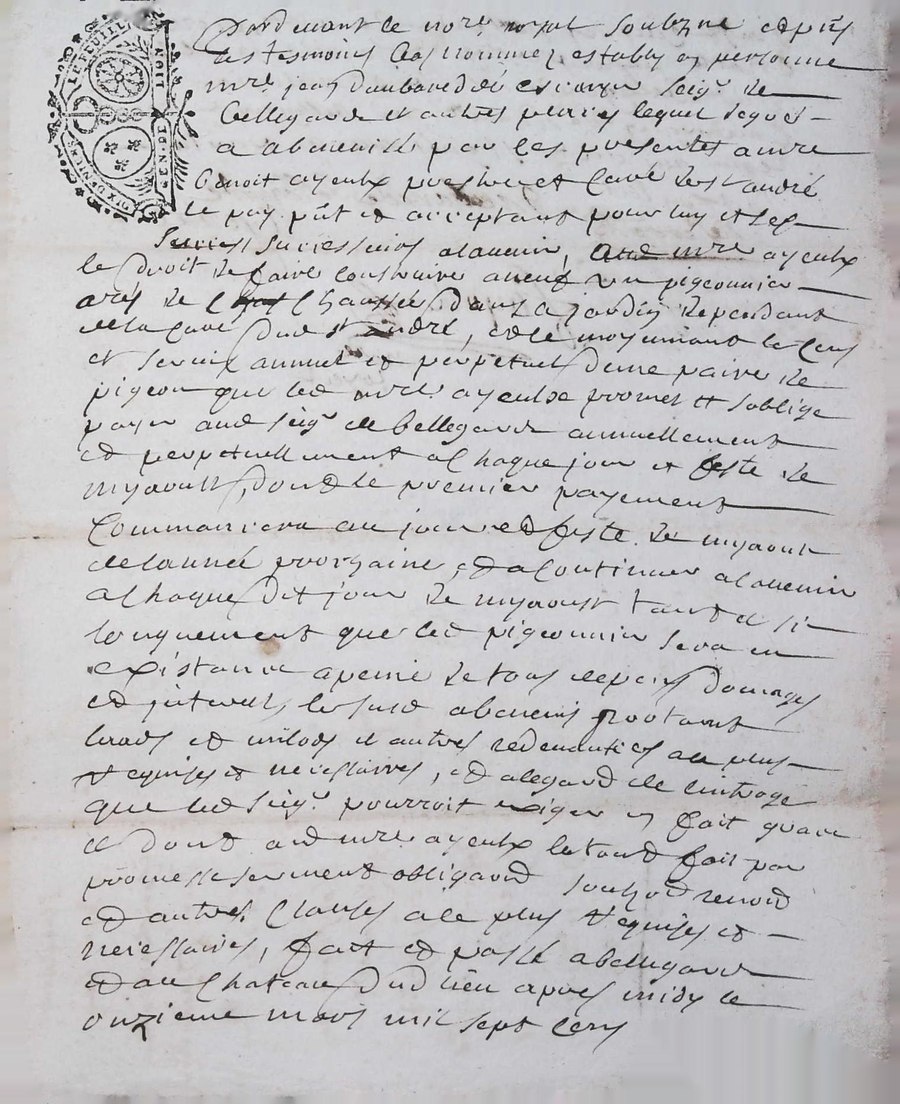 LE FEUILLE
GEN. DE LION
DIX DENIERS
Pardevant le nore royal soubzne et pns
les tesmoins bas nommez estably en personne
mre jean seigr de
bellegarde et autres places lequel de gre
a abenevise par ces presentes a mre
benoit ayeulx prestre et curé de st andré
le puy pnt et acceptant pour luy et ses
succest successeurs a ladvenir, aud mre ayeulx
le droit de faire construire a neuf un pigeonnier
aréz de chaussée dans la jardin dependant
de la cure dud st andré, et ce moyennant le cens
et servix annuel et perpetuel dune paire de
pigeon que led mre ayeulx promet et soblige
payer aud seigr de bellegarde annuellement
et perpetuellement a chaque jour et feste de
myaoust, dont le premier payement
commancera au jour et feste de myaoust
de lannée prochaine, et a continuer a ladvenir
a chaque dit jour de myaoust tant et si
longuement que led pigeonnier sera en
existance a peine de tous despens domages
et interests, le susd abenevis portant
laods et milods et autres redevances au plus
requises et necessaires, et alegard de lintrage
que led seigr pourroit exiger en fait grace
et dont aud mre ayeulx le tout fait par
promesse serment obligaon soubz on renon
et autres clauses a ce plus requises et
necessaires, fait et passé a bellegarde
et au chateau dud lieu apres midy le
onzieme mars mil sept cens